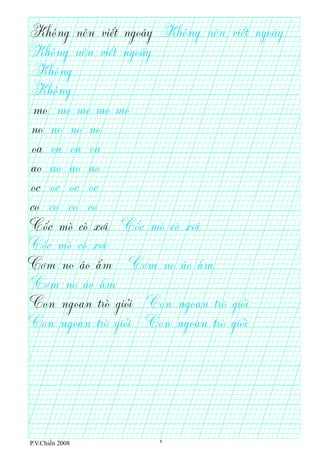 Không nên viết ngoáy Không nên viết ngoáy
Không nên viết ngoáy
Không
Không
mo mo mo mo mo
no no no no
oa oa oa oa
ao ao ao ao
oc oc oc oc
co co co co
Cốc mò cò xơi Cốc mò cò xơi
Cốc mò cò xơi
Cơm no áo ấm Cơm no áo ấm
Cơm no áo ấm
Con ngoan trò giỏi Con ngoan trò giỏi
Con ngoan trò giỏi Con ngoan trò giỏi
P.V.Chiến 2008